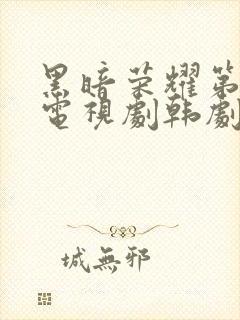 黑暗荣耀第
電視劇韩劇
城無邪